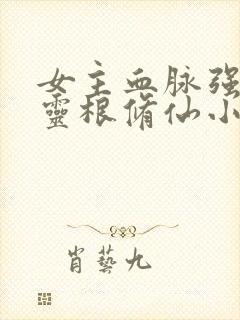 女主血脉强
靈根脩仙小
肖藝九